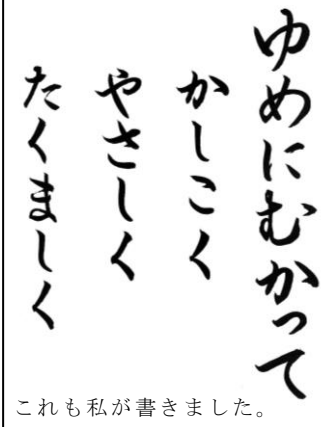 ゆめにむかって
かしこく
やさしく
たくましく
これも私が書きました。